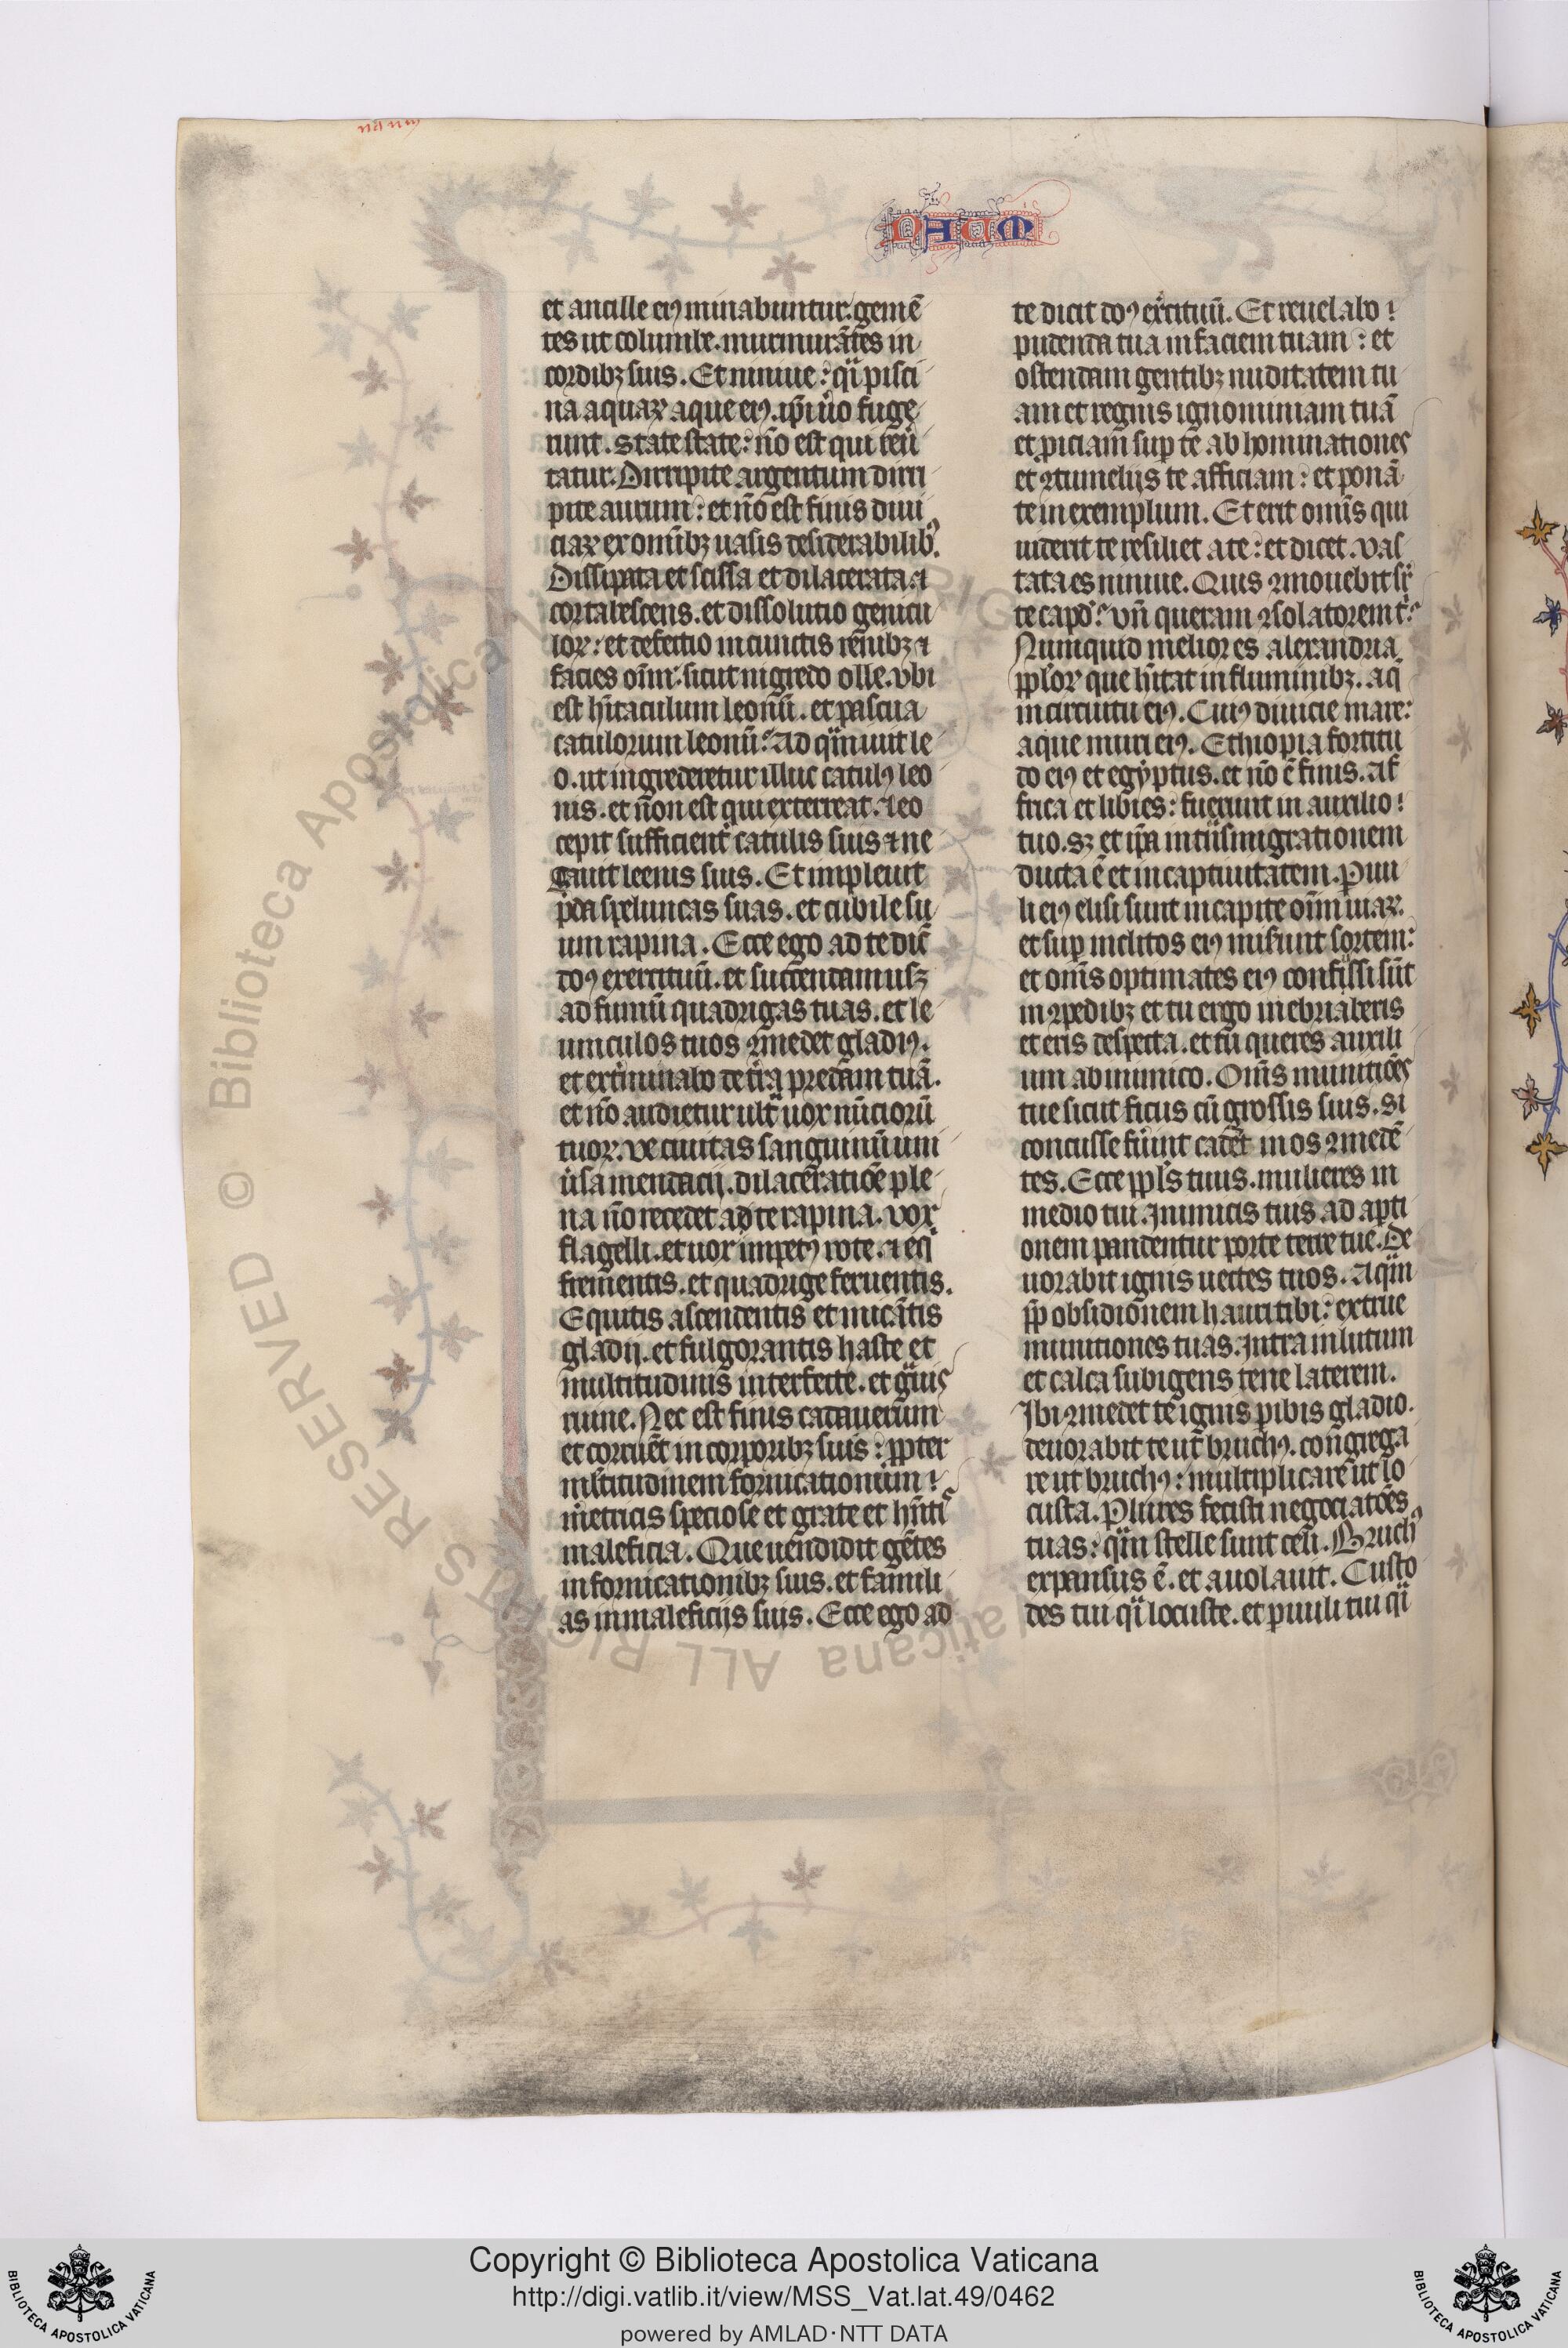 naum
NAUM
et ancille eiꝰ minabuntur. gemē
tes ut columbe. murmurātes in
cordibꝫ suis. Et niniue: qͣi pisci
na aquaꝝ aque eiꝰ. ip̄i ūo fuge
runt. state state: nō est qui reū
tatur. Diripite argentum diri
pite aurum: et nō est finis diui
ciaꝝ ex omībꝫ uasis desiderabilibꝰ.
Dissipata et scissa et dilacerata. ⁊
cor tabescens. et dissolutio genicu
loꝝ: et defectio in cunctis renibꝫ ⁊
facies oīm: sicut nigredo olle. vbi
est hītaculum leonū. et pascua
catulorum leonū? Ad qͣm iuit le
o. ut ingrederetur illuc catulꝰ leo
nis. et non est qui exterreat. leo
cepit sufficient̄ catulis suis ⁊ ne
cauit leenis suis. Et impleuit
p̄da speluncas suas. et cubile su
um rapina. Ecce ego ad te dic̄
dn̄s exercituū. et succendam usqꝫ
ad fumū quadrigas tuas. et le
unculos tuos ꝯmedet gladiꝰ.
et exterminabo de tr̄a predam tuā.
et nō audietur ultͣ uox nūciorū
tuoꝝ. ve ciuitas sanguinū uni
ūsa mendacij. dilaceratiōe ple
na nō recedet ad te rapina. vox
flagelli. et uox impetꝰ rote. ⁊ eq̄
frementis. et quadrige feruentis.
Equitis ascendentis et micātis
gladij. et fulgorantis haste et
multitudinis interfecte. et gͣuis
ruine. Nec est finis cadauerum
et corruēt in corporibꝫ suis: ꝓpter
ml̄titudinem fornicationum
mͤetricis speciose et grate et hn̄tis
maleficia. Que uendidit gētes
in fornicationibꝫ suis. et famili
as in maleficijs suis. Ecce ego ad
te dicit dn̄s ex̄cituū. Et reuelabo
pudenda tua in faciem tuam: et
ostendam gentibꝫ nuditatem tu
am et regnis ignominiam tuā
et ꝓiciam suꝑ te abhominationes
et ꝯtumelijs te afficiam: et ponā
te in exemplum. Et erit omīs qui
uiderit te resiliet a te: et dicet. vas
tata es niniue. Quis ꝯmouebit sꝑ
te capd̄? vn̄ queram ꝯsolatorem t̄?
Numquid melior es alexandria
ppl̄oꝝ que hītat in fluminibꝫ. aq̄
in circuitu eiꝰ. Cuiꝰ diuicie mare:
aque muri eiꝰ. Ethiopia fortitu
do eiꝰ et egyptus. et nō ē finis. Af
frica et libies: fuerunt in auxilio
tuo. sꝫ et ip̄a in tͣnsmigrationem
ducta ē et in captiuitatem. Paruu
li eiꝰ elisi sunt in capite oīm uiaꝝ.
et suꝑ inclitos eiꝰ miserunt sortem:
et omīs optimates eiꝰ confissi sūt
in ꝯpedibꝫ et tu ergo inebriaberis
et eris despecta. et tu queres auxili
um ab inimico. Omīs munitiōes
tue sicut ficus cū grossis suis. si
concusse fuerint cadēt in os ꝯmedē
tes. Ecce ppl̄s tuus. mulieres in
medio tui. Inimicis tuis ad apti
onem pandentur porte terre tue. De
uorabit ignis uectes tuos. Aqͣm
ꝓp obsidionem hauri tibi: extrue
munitiones tuas. Intra in lutum
et calca subigens tene laterem.
Ibi ꝯmedet te ignis ꝑibis gladio.
deuorabit te ut bruchꝰ. congrega
re ut bruchꝰ: multiplicare ut lo
custa. Plures fecisti negociatōes
tuas: qͣm stelle sunt celi. Bruchꝰ
expansus ē. et auolauit. Custo
des tui qͣi locuste. et paruuli tui qͣi
Biblioteca Apostolica Vaticana ALL RIGHTS RESERVED ©
Copyright © Biblioteca Apostolica Vaticana
http://digi.vatlib.it/view/MSS_Vat.lat.49/0462
powered by AMLAD·NTT DATA
BIBLIOTECA APOSTOLICA VATICANA
BIBLIOTECA APOSTOLICA VATICANA